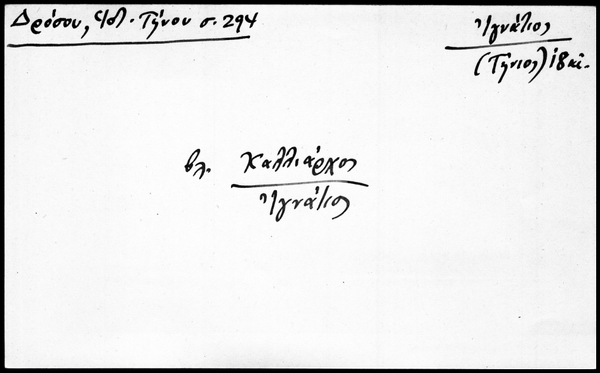 Δρόσου, Ἱστ. Τήνου σ. 294
Ἰγνάτιος
(Τήνιος) 18 αἰ.
βλ. Καλλίαρχος
Ἰγνάτιος